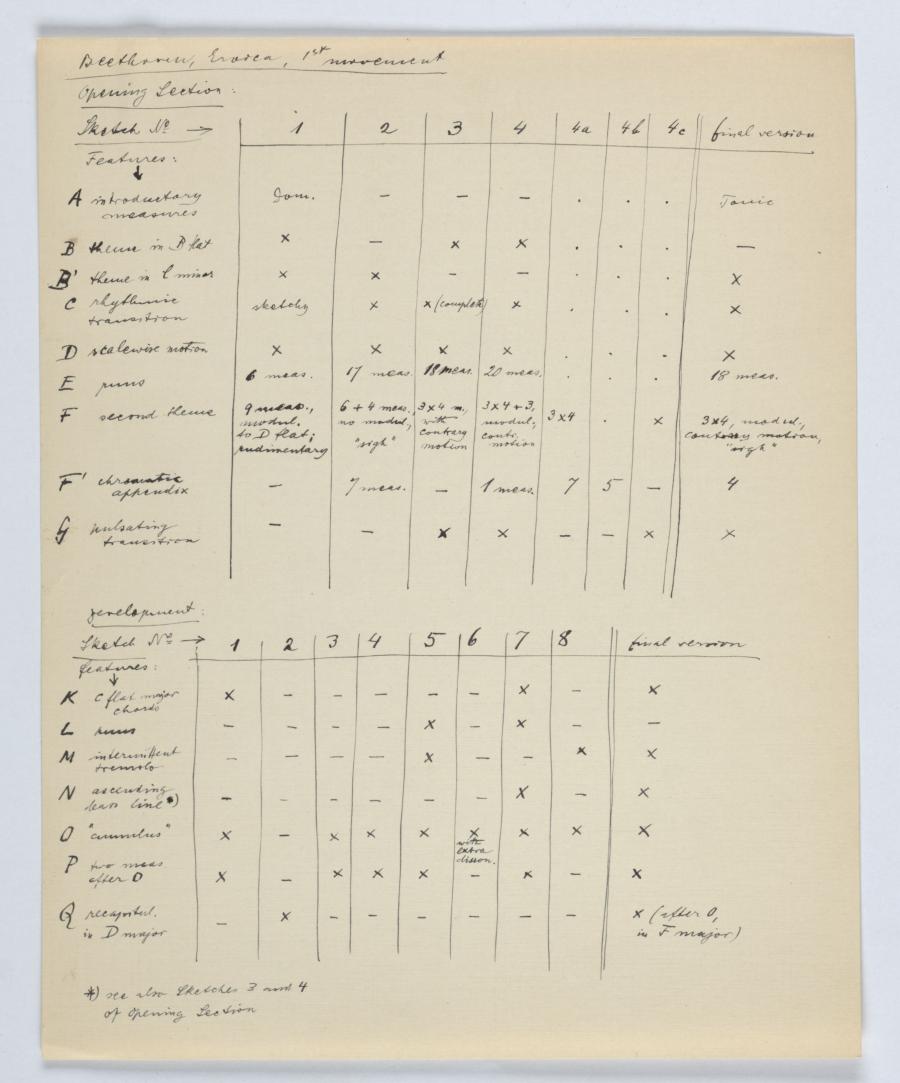 Beethoven, Eroica, 1st movement
Opening Section:
Sketch No → 1 2 3 4 4a 4b 4c final version
Features:
↓
A introductory measures Dom. — — — . . . Tonic
B theme in B flat x — x x . . . —
B' theme in C minor x x – — . . . x
C rhythmic transition sketchy x x (complete) x . . . x
D scalewise motion x x x x . . . x
E runs 6 meas. 17 meas. 18 meas. 20 meas. . . . 18 meas.
F second theme 9 meas., modul. to D flat; rudimentary 6 + 4 meas., no modul., "sigh" 3x4 m., with contrary motion 3x4+3, modul., contr. motion 3x4 . x 3x4, modul., contrary motion, "sigh"
F' chromatic appendix — 7 meas. — 1 meas. 7 5 — 4
G pulsating transition — — x x — — x x
Development:
Sketch No → 1 2 3 4 5 6 7 8 final version
features:
↓
K C flat major chords x — — — — — x — x
L runs — — — — x — x — —
M intermittent tremolo — — — — x — — x x
N ascending bass line *) — — — — — — x — x
O "cumulus" x — x x x x with extra disson. x x x
P two meas after O x — x x x — x — x
Q recapitul. in D major — x — — — — — — x (after O, in F major)
*) see also Sketches 3 and 4
of Opening Section